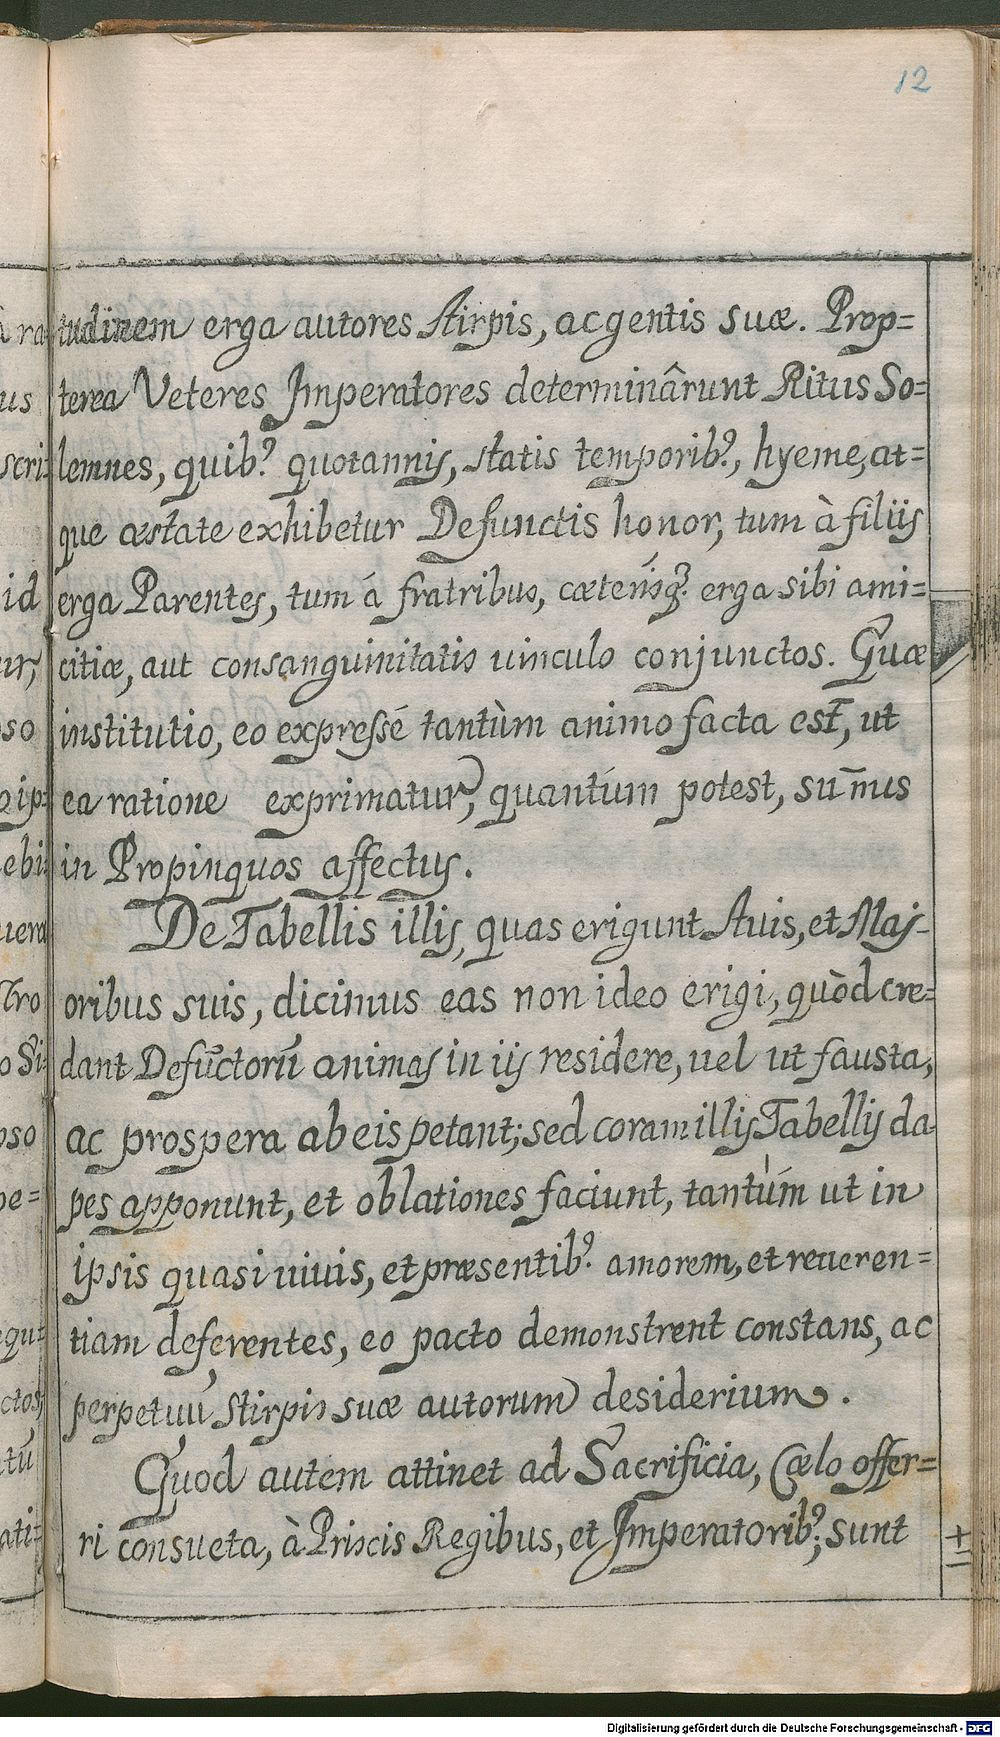 12
tudinem erga autores Stirpis, ac gentis suæ. Prop=
terea Veteres Imperatores determinârunt Ritus So=
lemnes, quib.9 quotannis, statis temporib.9, hyeme, at=
que æstate exhibetur Defunctis honor, tum à filiis
erga Parentes, tum á fratribus, cæterisq3. erga sibi ami=
citiæ, aut consanguinitatis uinculo conjunctos. Quæ
institutio, eo expressé tantùm animo facta est, ut
ea ratione exprimatur, quantúm potest, sum̄us
in Propinquos affectus.
De Tabellis illis, quas erigunt Auis, et Maj-
oribus suis, dicimus eas non ideo erigi, quòd cre=
dant Defūctorū animas in iis residere, uel ut fausta,
ac prospera ab eis petant; sed coram illis Tabellis da-
pes apponunt, et oblationes faciunt, tantúm ut in
ipsis quasi uiuis, et præsentib.9 amorem, et reueren=
tiam deferentes, eo pacto demonstrent constans, ac
perpetuū Stirpis suæ autorum desiderium.
Quod autem attinet ad Sacrificia, Cælo offer=
ri consueta, à Priscis Regibus, et Imperatorib.9; sunt
Digitalisierung gefördert durch die Deutsche Forschungsgemeinschaft - DFG